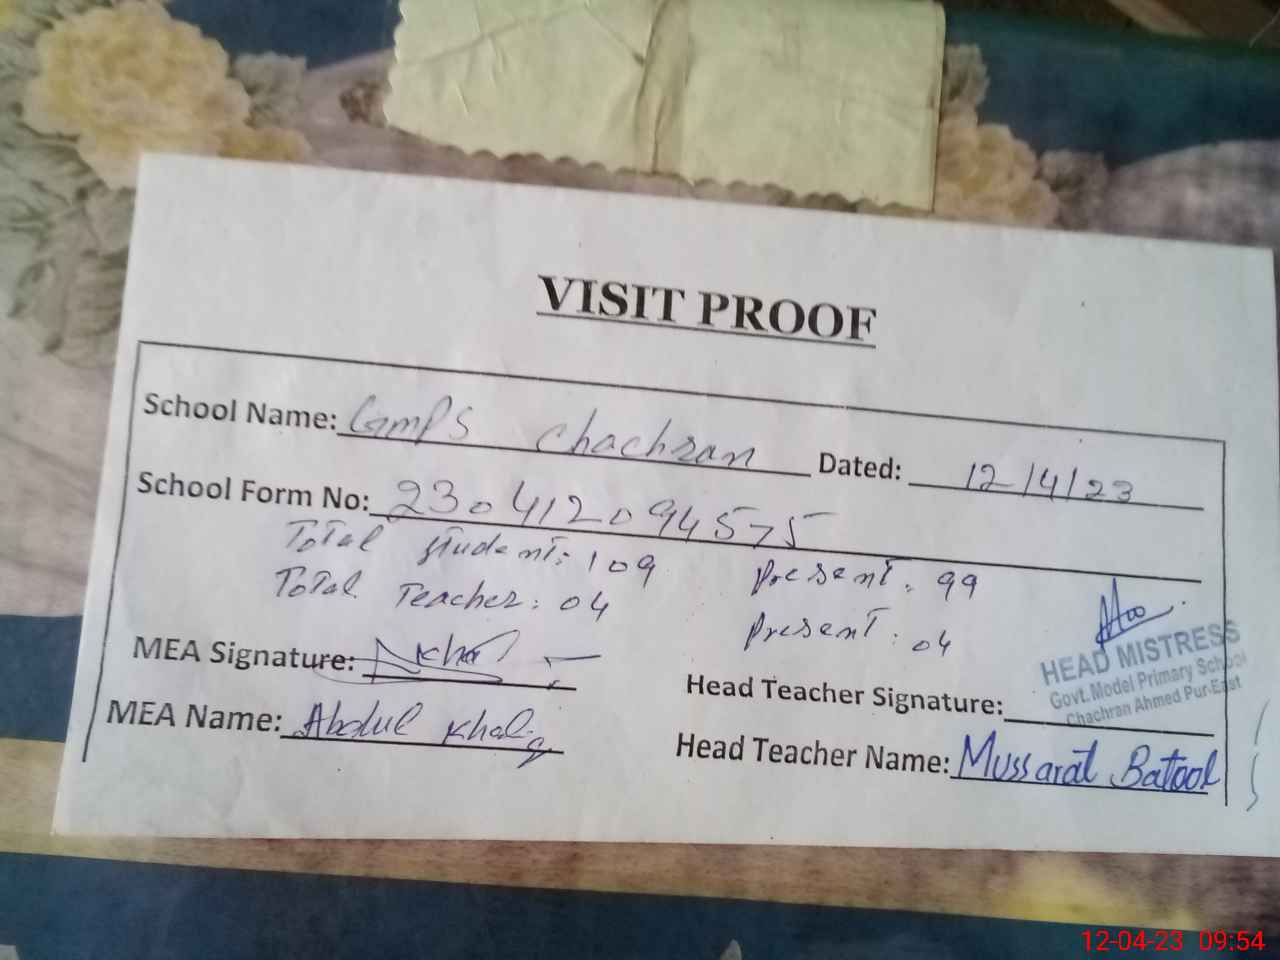 VISIT PROOF
School Name: GMPS Chachran Dated: 12/4/23
School Form No: 230412094575
Total student: 109 Present: 99
Total Teacher: 04 Present: 04
MEA Signature:
HEAD MISTRESS
Govt. Model Primary School
Chachran Ahmed Pur East
Head Teacher Signature:
MEA Name: Abdul Khaliq
Head Teacher Name: Mussarat Batool
12-04-23 09:54